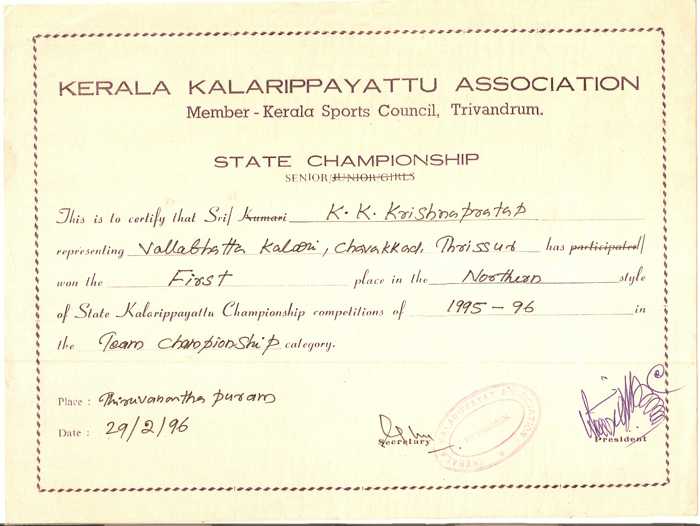 KERALA KALARIPPAYATTU ASSOCIATION
Member - Kerala Sports Council, Trivandrum.
STATE CHAMPIONSHIP
SENIOR/JUNIOR/GIRLS
This is to certify that Sri/ Kumari K. K. Krishnapratap
representing Vallabhatta Kalari, Chavakkad, Thrissur has participated/
won the First place in the Northern style
of State Kalarippayattu Championship competitions of 1995-96 in
the Team Championship category.
Place : Thiruvananthapuram
Date : 29/2/96
Secretary
President